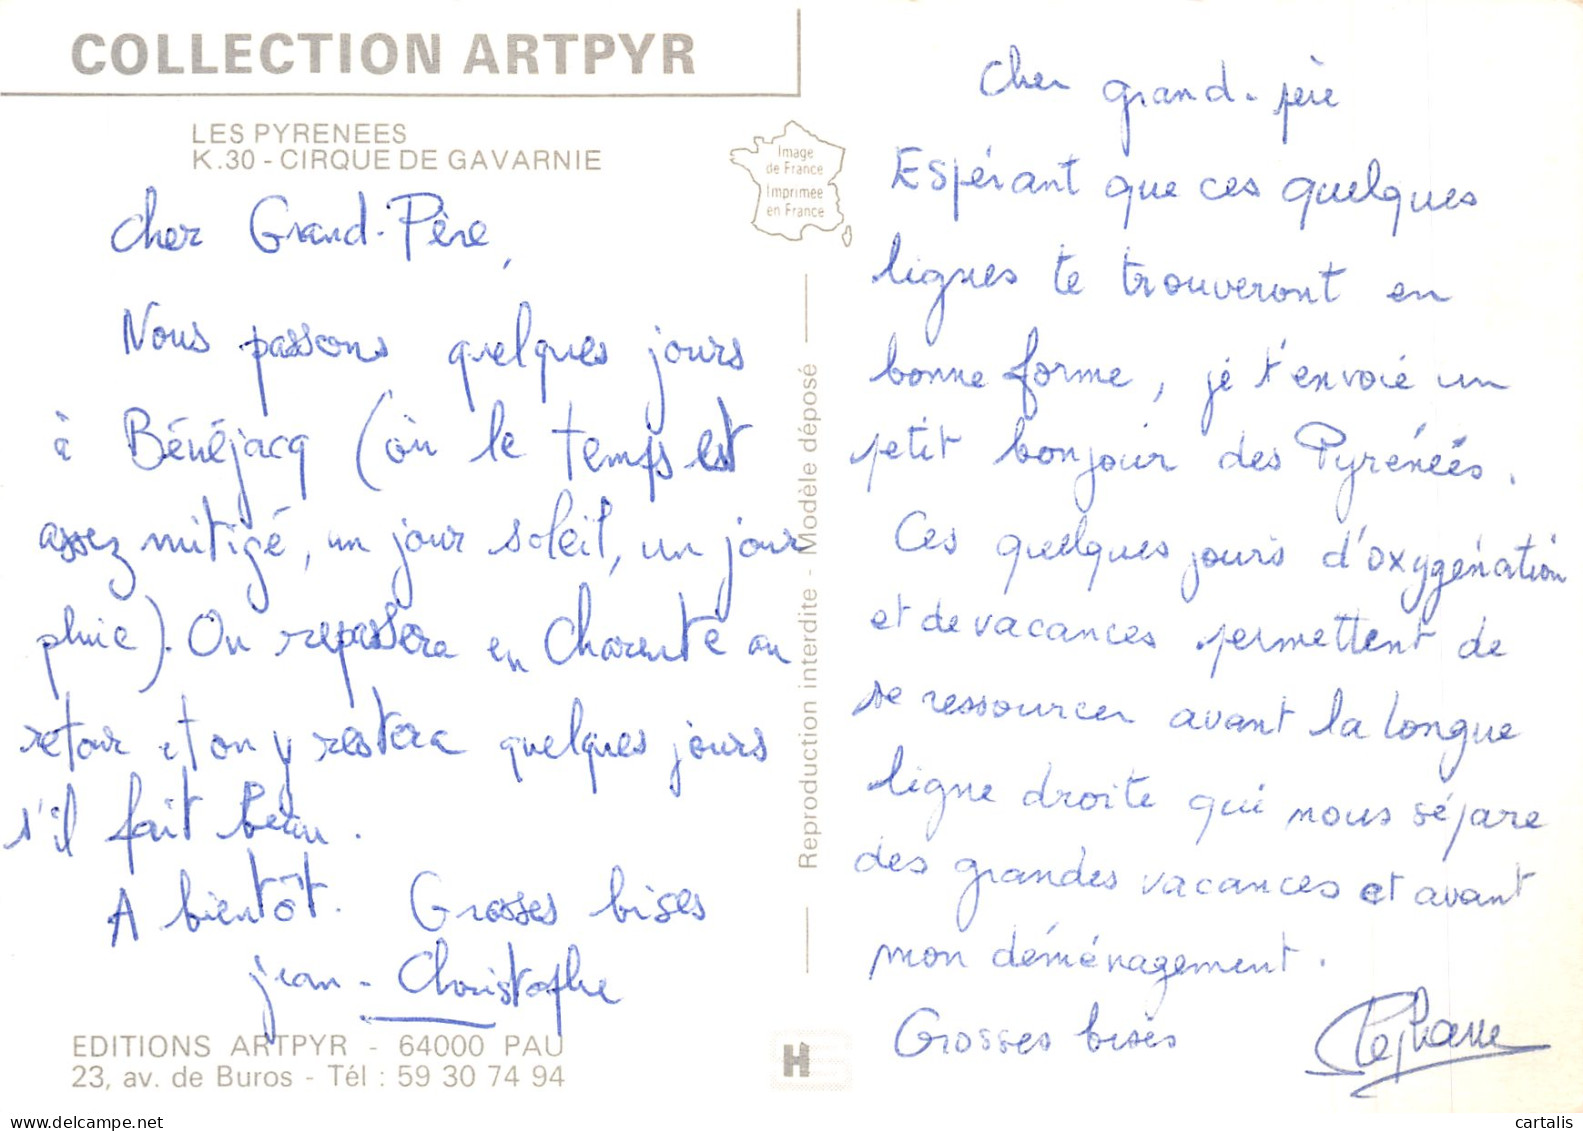 COLLECTION ARTPYR
LES PYRENEES
K.30 - CIRQUE DE GAVARNIE
Cher Grand-Père,
Nous passons quelques jours
à Bénéjacq (où le temps est
assez mitigé, un jour soleil, un jour
pluie). On repassera en Charente au
retour et on y restera quelques jours
s'il fait beau.
A bientôt. Grosses bises
Jean-Christophe
EDITIONS ARTPYR - 64000 PAU
23, av. de Buros - Tél : 59 30 74 94
Image
de France
Imprimée
en France
Reproduction interdite - Modèle déposé
H
Cher grand-père
Espérant que ces quelques
lignes te trouveront en
bonne forme, je t'envoie un
petit bonjour des Pyrénées.
Ces quelques jours d'oxygénation
et de vacances permettent de
se ressourcer avant la longue
ligne droite qui nous sépare
des grandes vacances et avant
mon déménagement.
Grosses bises
Stéphane
cartalis